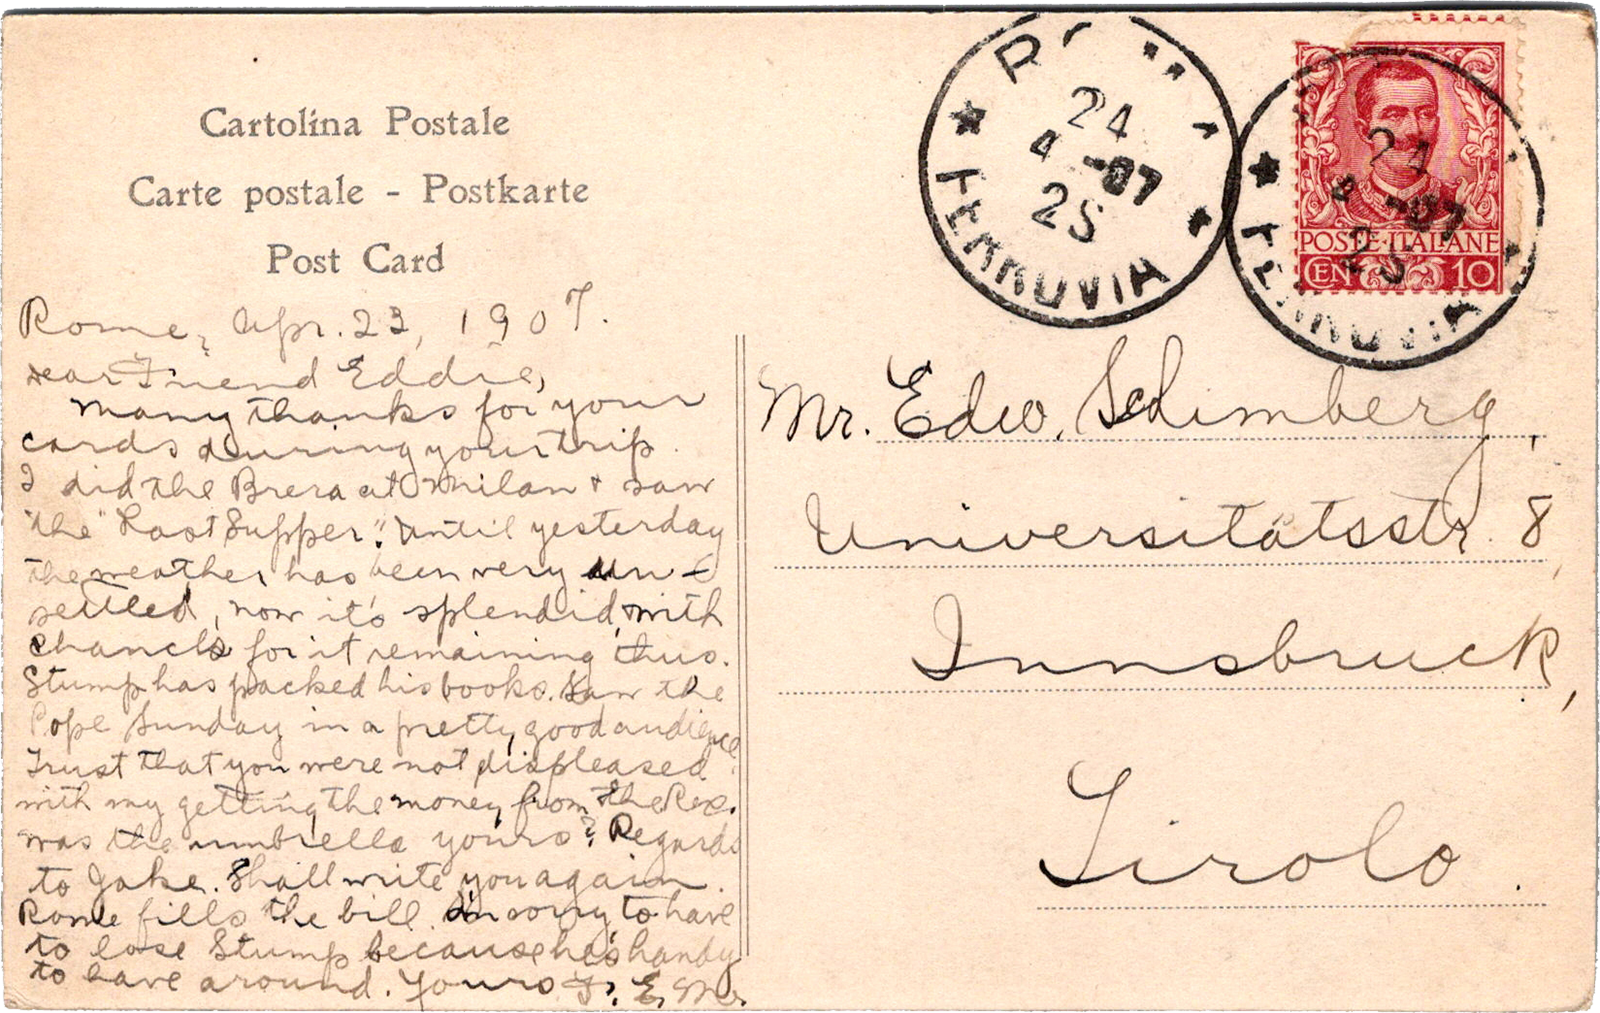 Cartolina Postale
Carte postale - Postkarte
Post Card
Rome, Apr. 23, 1907.
Dear Friend Eddie,
Many thanks for your
cards during your trip.
I did the Brera at Milan & saw
the "Last Supper". Until yesterday
the weather has been very un-
settled, now it's splendid, with
chances for it remaining thus.
Stump has packed his books. Saw the
Pope Sunday in a pretty good audience.
Trust that you were not displeased
with my getting the money from the Rex.
Was the umbrella yours? Regards
to Jake. Shall write you again.
Rome fills the bill. Am sorry to have
to lose Stump because he's handy
to have around. Yours F. E. Mc.
ROMA
24
4 -07
2S
FERROVIA
24
4 -07
2S
FERROVIA
POSTE·ITALIANE
CEN 10
Mr. Edw. Schimberg,
Universitätsstr. 8,
Innsbruck,
Tirolo.